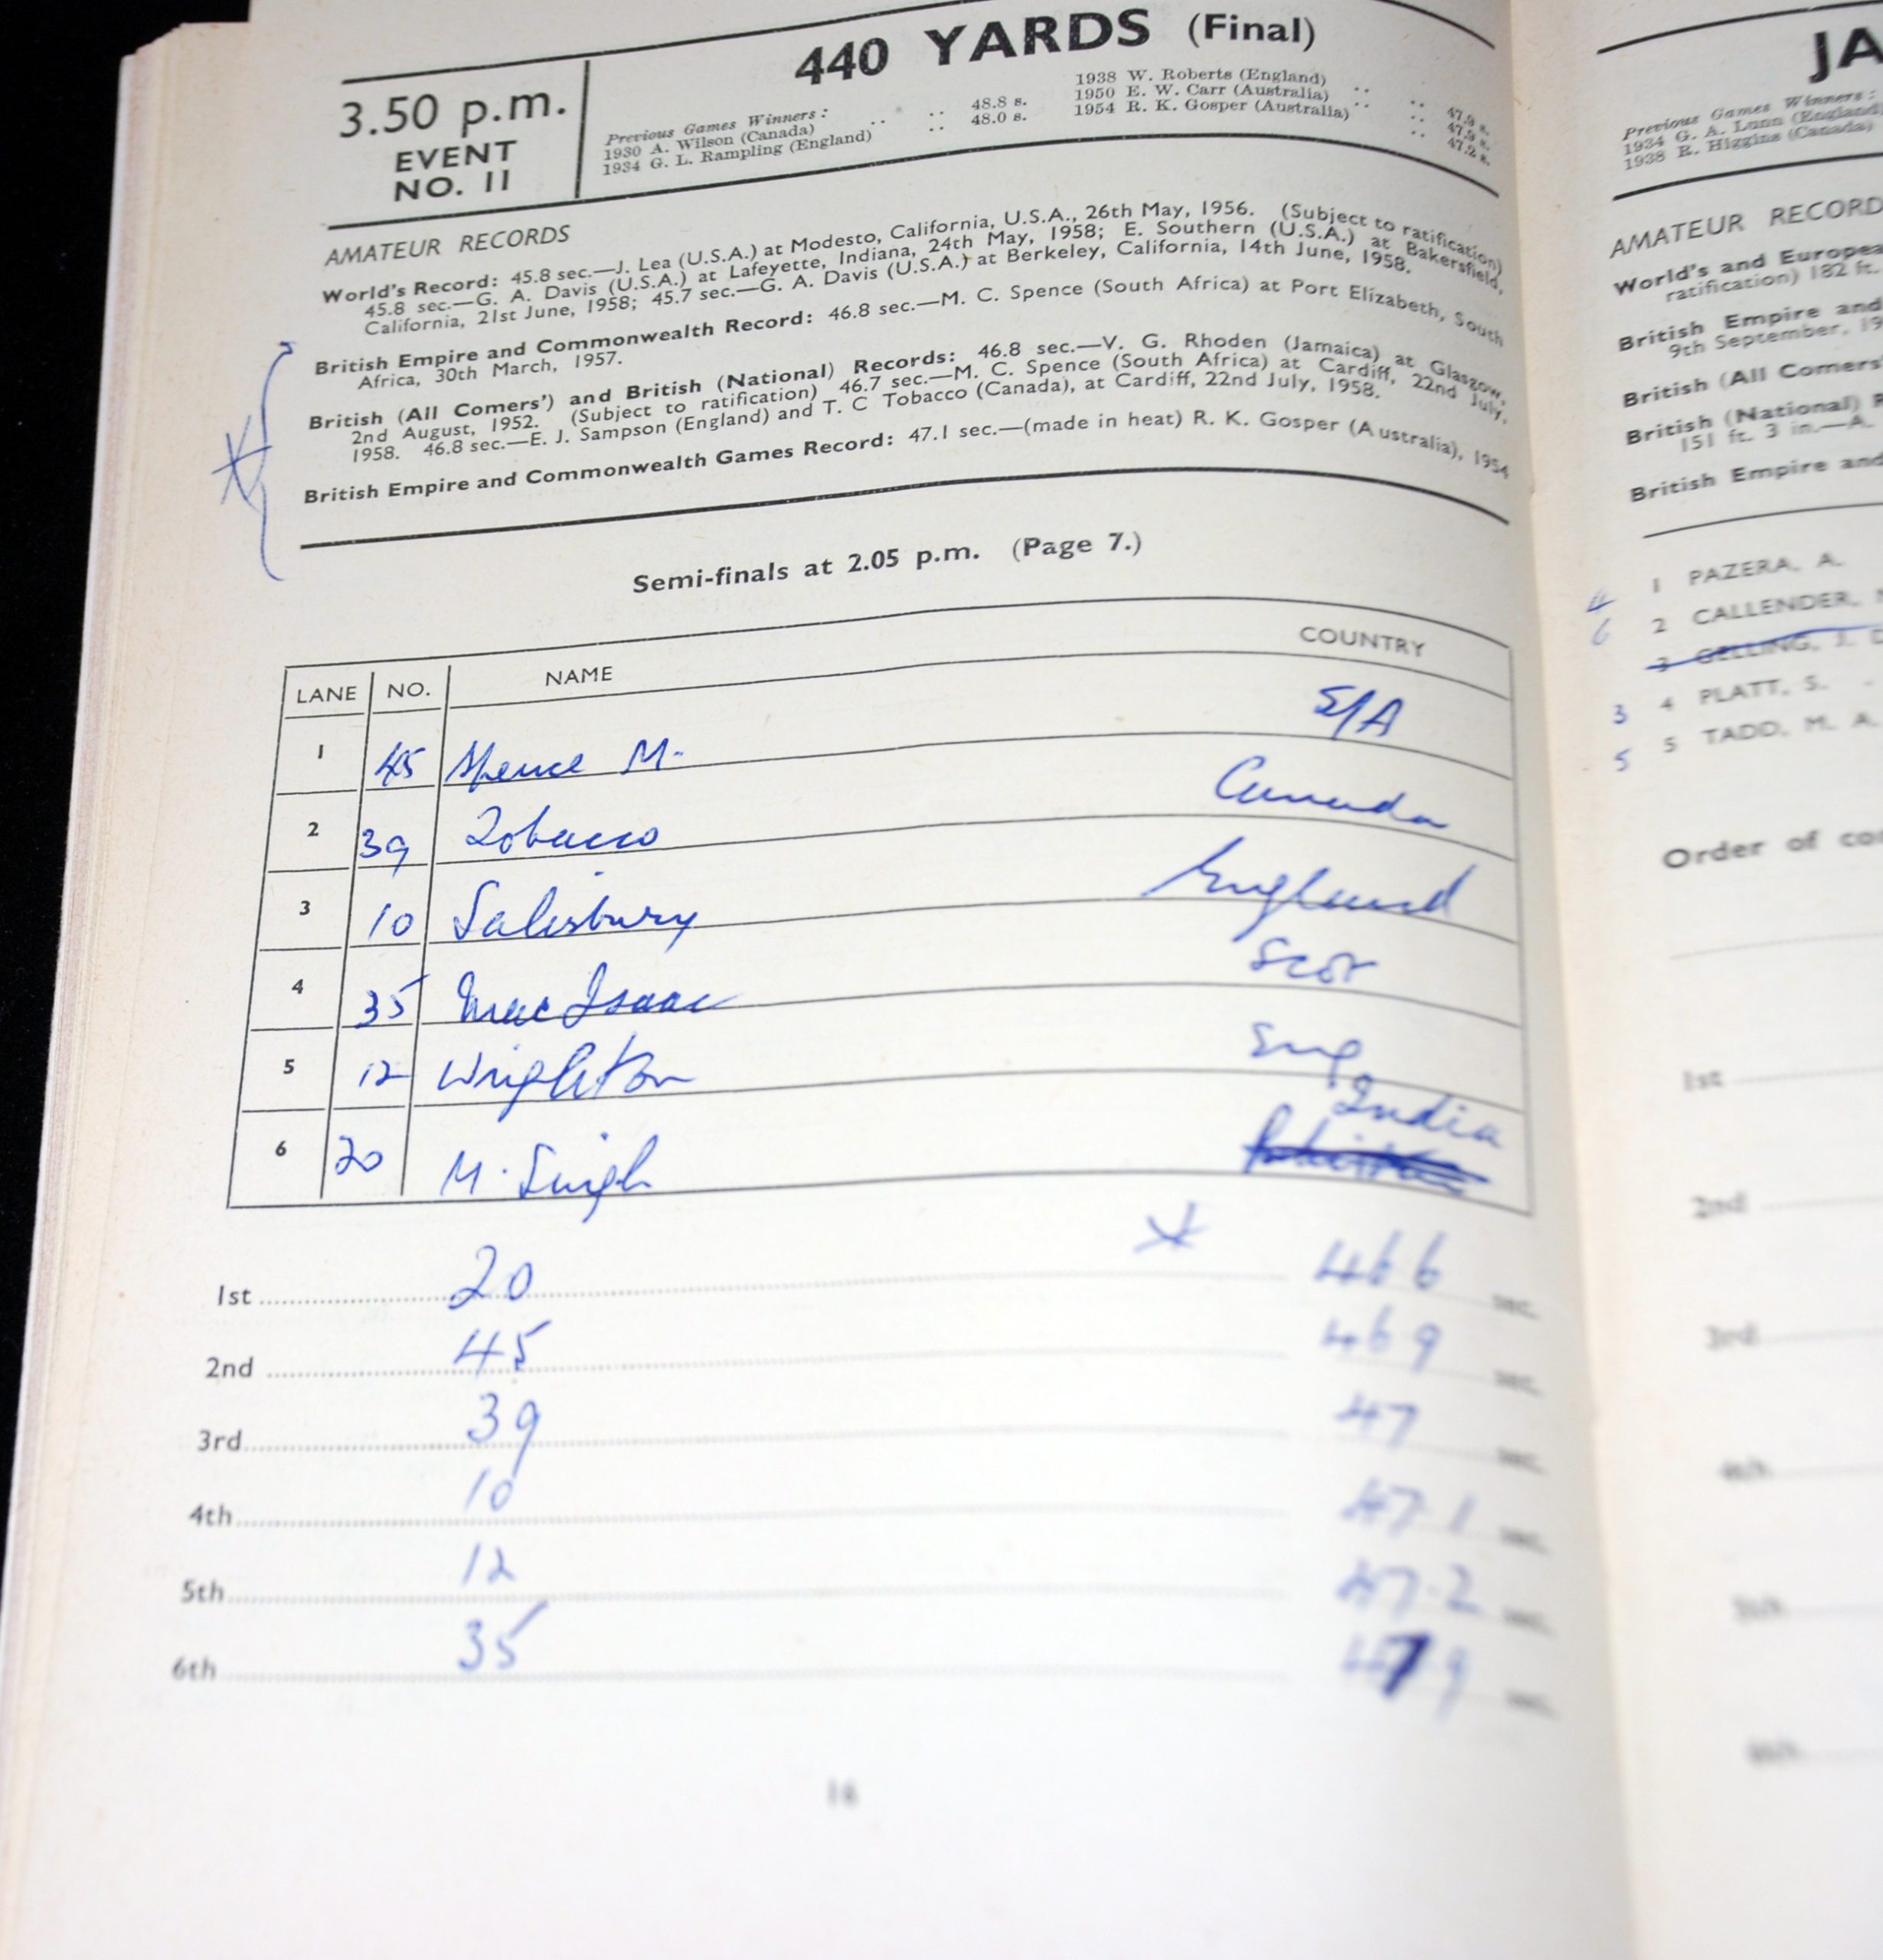 440 YARDS (Final)
3.50 p.m.
EVENT
NO. 11
Previous Games Winners :
1930 A. Wilson (Canada) .. .. 48.8 s.
1934 G. L. Rampling (England) .. 48.0 s.
1938 W. Roberts (England) .. .. 47.9 s.
1950 E. W. Carr (Australia) .. .. 47.9 s.
1954 R. K. Gosper (Australia) .. 47.2 s.
AMATEUR RECORDS
World's Record: 45.8 sec.—J. Lea (U.S.A.) at Modesto, California, U.S.A., 26th May, 1956. (Subject to ratification)
45.8 sec.—G. A. Davis (U.S.A.) at Lafeyette, Indiana, 24th May, 1958; E. Southern (U.S.A.) at Bakersfield,
California, 21st June, 1958; 45.7 sec.—G. A. Davis (U.S.A.) at Berkeley, California, 14th June, 1958.
British Empire and Commonwealth Record: 46.8 sec.—M. C. Spence (South Africa) at Port Elizabeth, South
Africa, 30th March, 1957.
British (All Comers') and British (National) Records: 46.8 sec.—V. G. Rhoden (Jamaica) at Glasgow,
2nd August, 1952. (Subject to ratification) 46.7 sec.—M. C. Spence (South Africa) at Cardiff, 22nd July,
1958. 46.8 sec.—E. J. Sampson (England) and T. C Tobacco (Canada), at Cardiff, 22nd July, 1958.
British Empire and Commonwealth Games Record: 47.1 sec.—(made in heat) R. K. Gosper (Australia), 1954
Semi-finals at 2.05 p.m. (Page 7.)
LANE NO. NAME COUNTRY
1 45 Spence M. S/A
2 39 Tobacco Canada
3 10 Salisbury England
4 35 MacIsaac Scot
5 12 Wrighton Eng
6 20 M. Singh India
1st 20 46 6 sec.
2nd 45 46 9 sec.
3rd 39 47 sec.
4th 10 47.1 sec.
5th 12 47.2 sec.
6th 35 47 9 sec.
16
JA
Previous Games Winners :
1934 G. A. Lunn (England)
1938 R. Higgins (Canada)
AMATEUR RECORD
World's and Europea
ratification) 182 ft.
British Empire and
9th September, 19
British (All Comers'
British (National) R
151 ft. 3 in.—A.
British Empire and
1 PAZERA, A.
4 2 CALLENDER,
6 3 GELLING, J. D
3 4 PLATT, S.
5 5 TADD, M. A.
Order of co
1st
2nd
3rd
4th
5th
6th